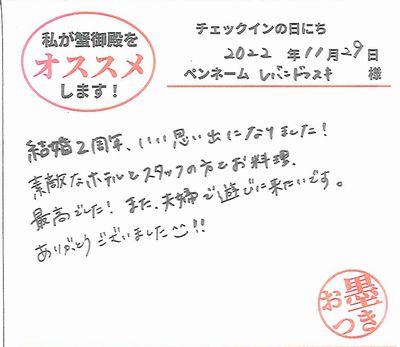 私が蟹御殿を
オススメ
します!
チェックインの日にち
2022 年 11月 29日
ペンネーム レバンドフスキ 様
結婚2周年、いい思い出になりました!
素敵なホテルとスタッフの方とお料理、
最高でした! また、夫婦で遊びに来たいです。
ありがとうございました!!
お墨
つき